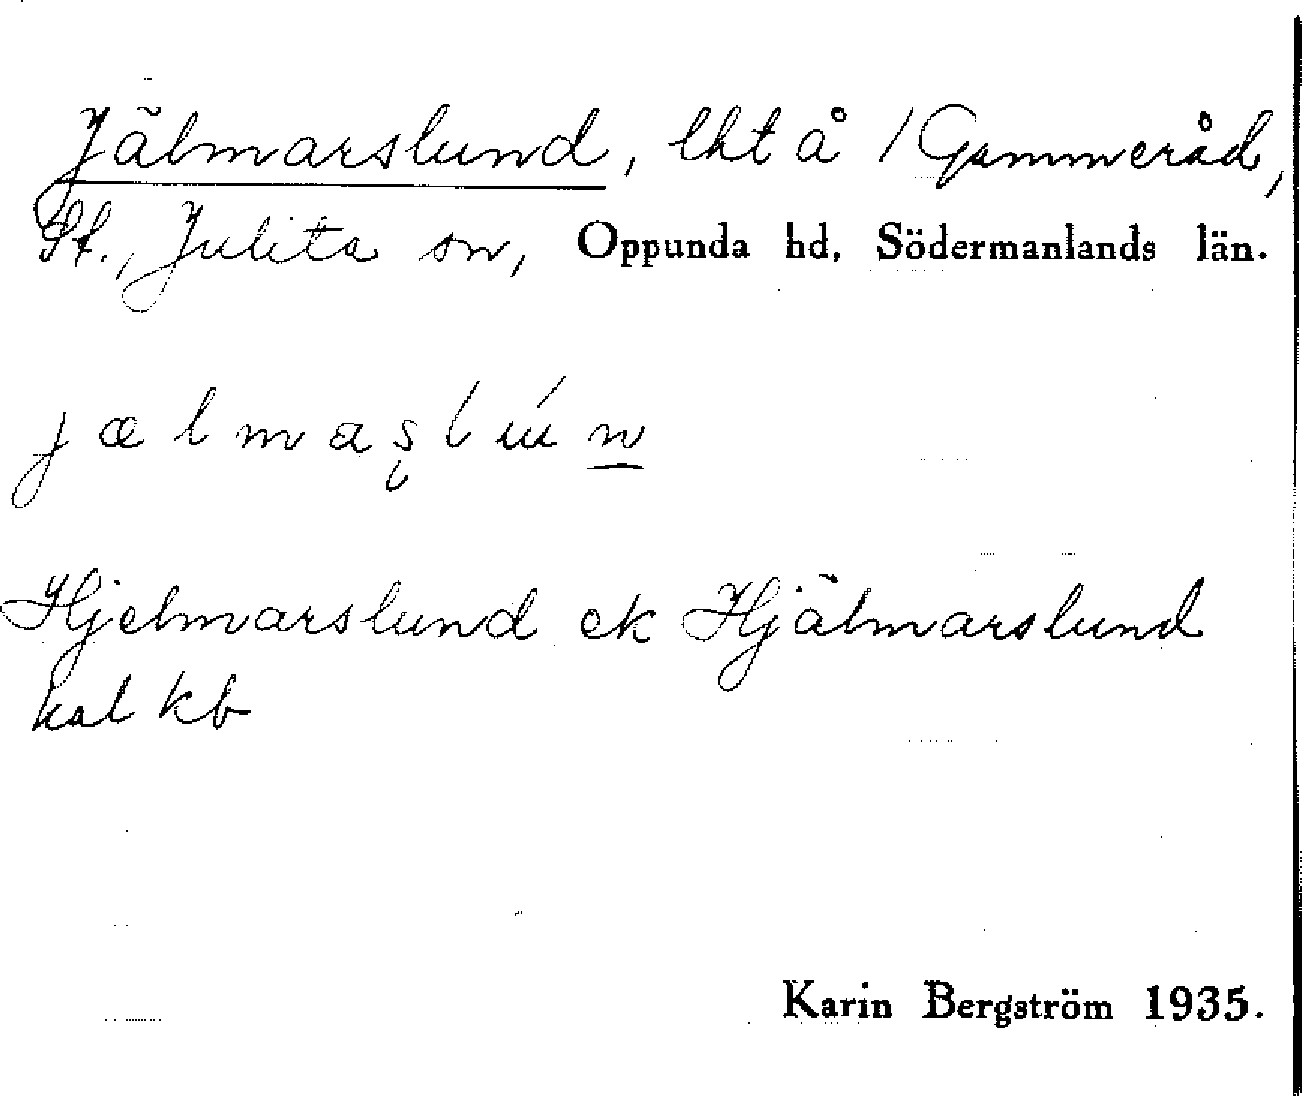 Jälmarslund, lht å 1 Gammeråd,
St., Julita sn, Oppunda hd, Södermanlands län.
j æ l m a s l ú n
Hjelmarslund ek Hjälmarslund
hal kb
Karin Bergström 1935.